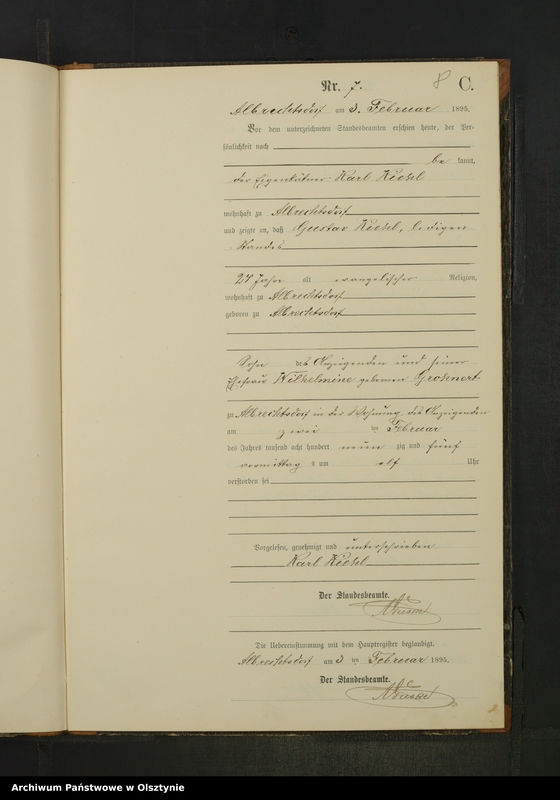 8
Nr. 7. C.
Albrechtsdorf am 3. Februar 1895.
Vor dem unterzeichneten Standesbeamten erschien heute, der Per-
sönlichkeit nach
be kannt,
der Eigenkätner Karl Kiehl
wohnhaft zu Albrechtsdorf
und zeigte an, daß Gustav Kiehl, ledigen
Standes
24 Jahre alt evangelischer Religion,
wohnhaft zu Albrechtsdorf
geboren zu Albrechtsdorf
Sohn des Anzeigenden und seiner
Ehefrau Wilhelmine geborenen Grohnert
zu Albrechtsdorf in der Wohnung des Anzeigenden
am zwei ten Februar
des Jahres tausend acht hundert neun zig und fünf
vormittag s um elf Uhr
verstorben sei
Vorgelesen, genehmigt und unterschrieben
Karl Kiehl
Der Standesbeamte.
Die Uebereinstimmung mit dem Hauptregister beglaubigt.
Albrechtsdorf am 3 ten Februar 1895.
Der Standesbeamte.
Archiwum Państwowe w Olsztynie